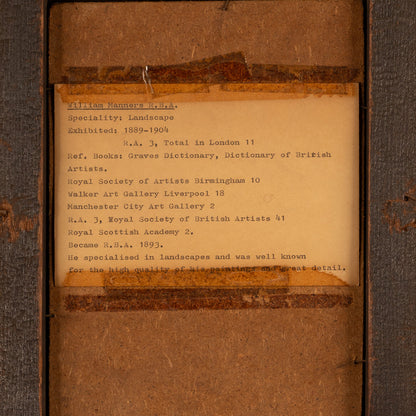 William Manners R.B.A.
Speciality: Landscape
Exhibited: 1889-1904
R.A. 3, Total in London 11
Ref. Books: Graves Dictionary, Dictionary of British
Artists.
Royal Society of Artists Birmingham 10
Walker Art Gallery Liverpool 18
Manchester City Art Gallery 2
R.A. 3, Royal Society of British Artists 41
Royal Scottish Academy 2.
Became R.B.A. 1893.
He specialised in landscapes and was well known
for the high quality of his paintings and great detail.